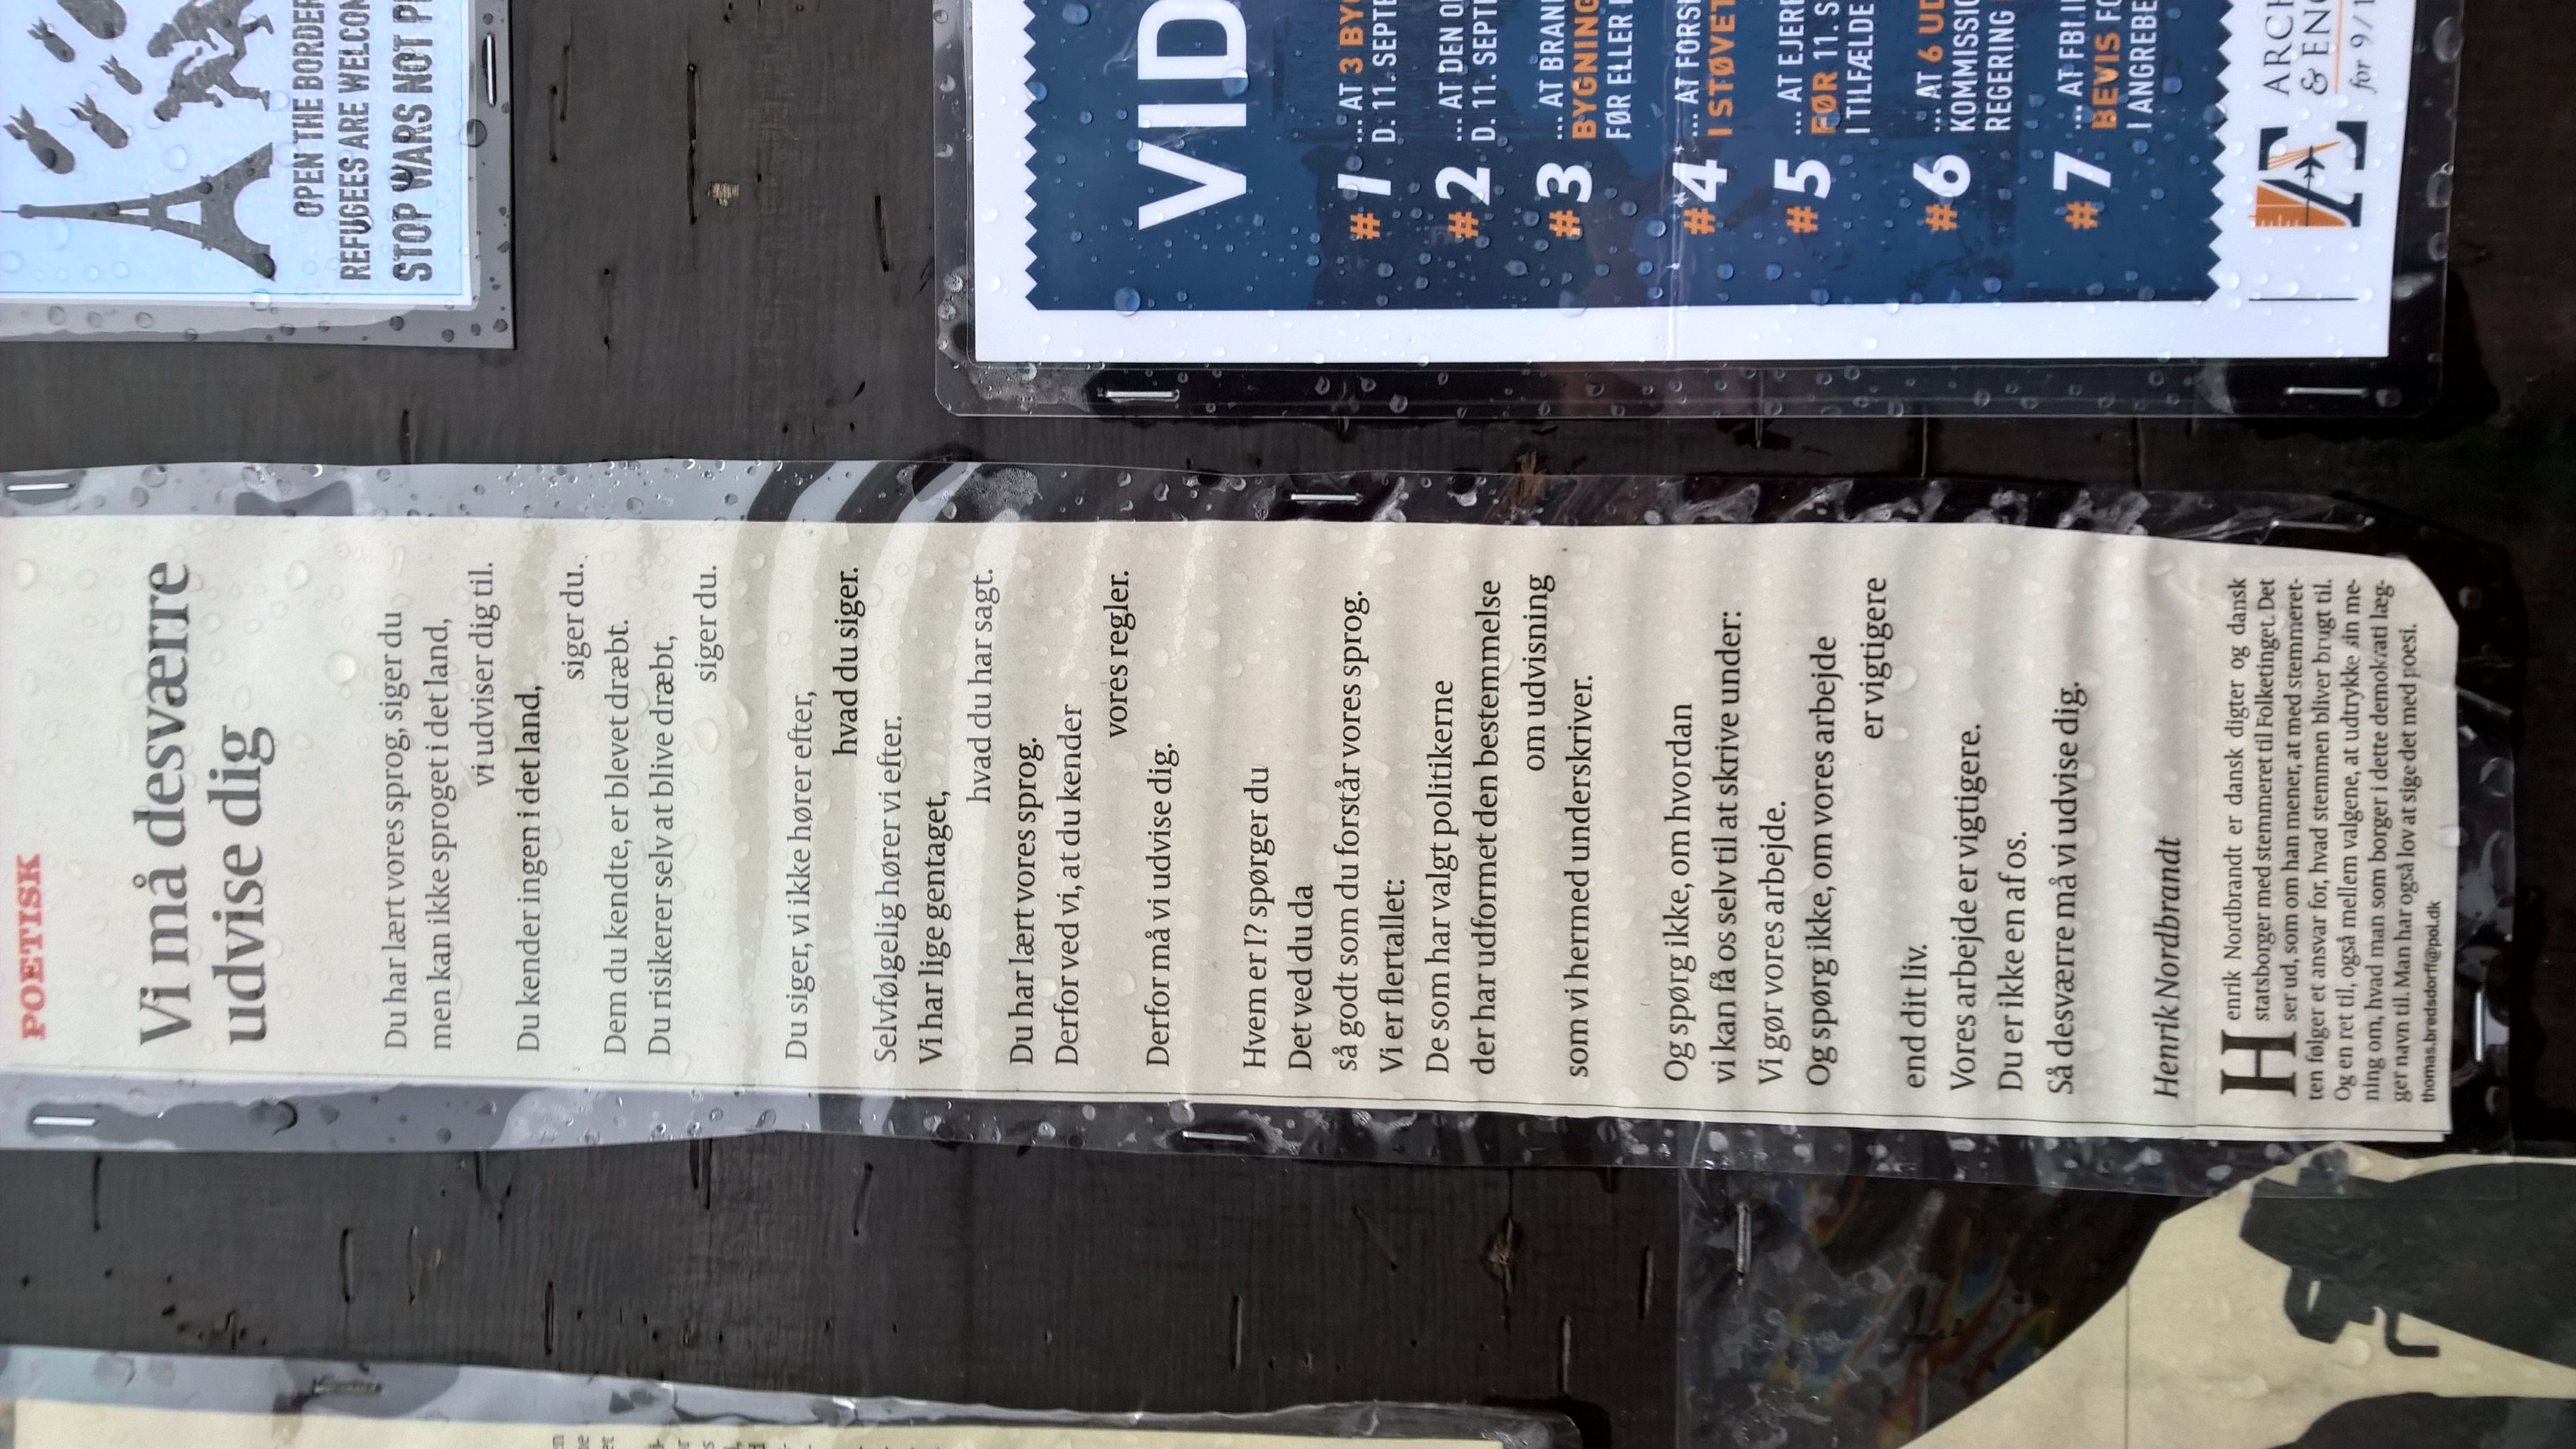 POETISK
Vi må desværre
udvise dig
Du har lært vores sprog, siger du
men kan ikke sproget i det land,
vi udviser dig til.
Du kender ingen i det land,
siger du.
Dem du kendte, er blevet dræbt.
Du risikerer selv at blive dræbt,
siger du.
Du siger, vi ikke hører efter,
hvad du siger.
Selvfølgelig hører vi efter.
Vi har lige gentaget,
hvad du har sagt.
Du har lært vores sprog.
Derfor ved vi, at du kender
vores regler.
Derfor må vi udvise dig.
Hvem er I? spørger du
Det ved du da
så godt som du forstår vores sprog.
Vi er flertallet:
De som har valgt politikerne
der har udformet den bestemmelse
om udvisning
som vi hermed underskriver.
Og spørg ikke, om hvordan
vi kan få os selv til at skrive under:
Vi gør vores arbejde.
Og spørg ikke, om vores arbejde
er vigtigere
end dit liv.
Vores arbejde er vigtigere.
Du er ikke en af os.
Så desværre må vi udvise dig.
Henrik Nordbrandt
Henrik Nordbrandt er dansk digter og dansk
statsborger med stemmeret til Folketinget. Det
ser ud, som om han mener, at med stemmeret-
ten følger et ansvar for, hvad stemmen bliver brugt til.
Og en ret til, også mellem valgene, at udtrykke sin me-
ning om, hvad man som borger i dette demokrati læg-
ger navn til. Man har også lov at sige det med poesi.
thomas.bredsdorff@pol.dk
OPEN THE BORDER
REFUGEES ARE WELCOM
STOP WARS NOT
VID
#1 ... AT 3
D. 11.
#2 ... AT DEN
D. 11.
#3 ... AT
BYGNING
FØR ELLER
#4 ... AT
I STØVET
#5 ... AT
FØR 11.
I TILFÆLDE
#6 ... AT 6
REGERING
#7 ... AT FBI
BEVIS
I ANGREBE
AE
& ENG
for 9/1